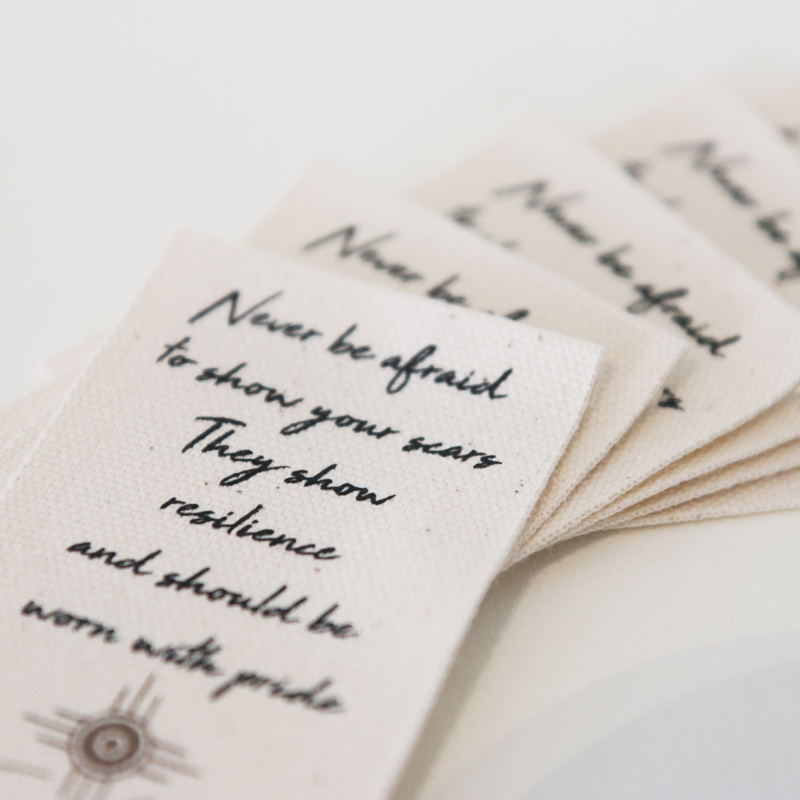 Never be afraid
to show your scars
They show
resilience
and should be
worn with pride
Never be af
Never be afraid
Never be a